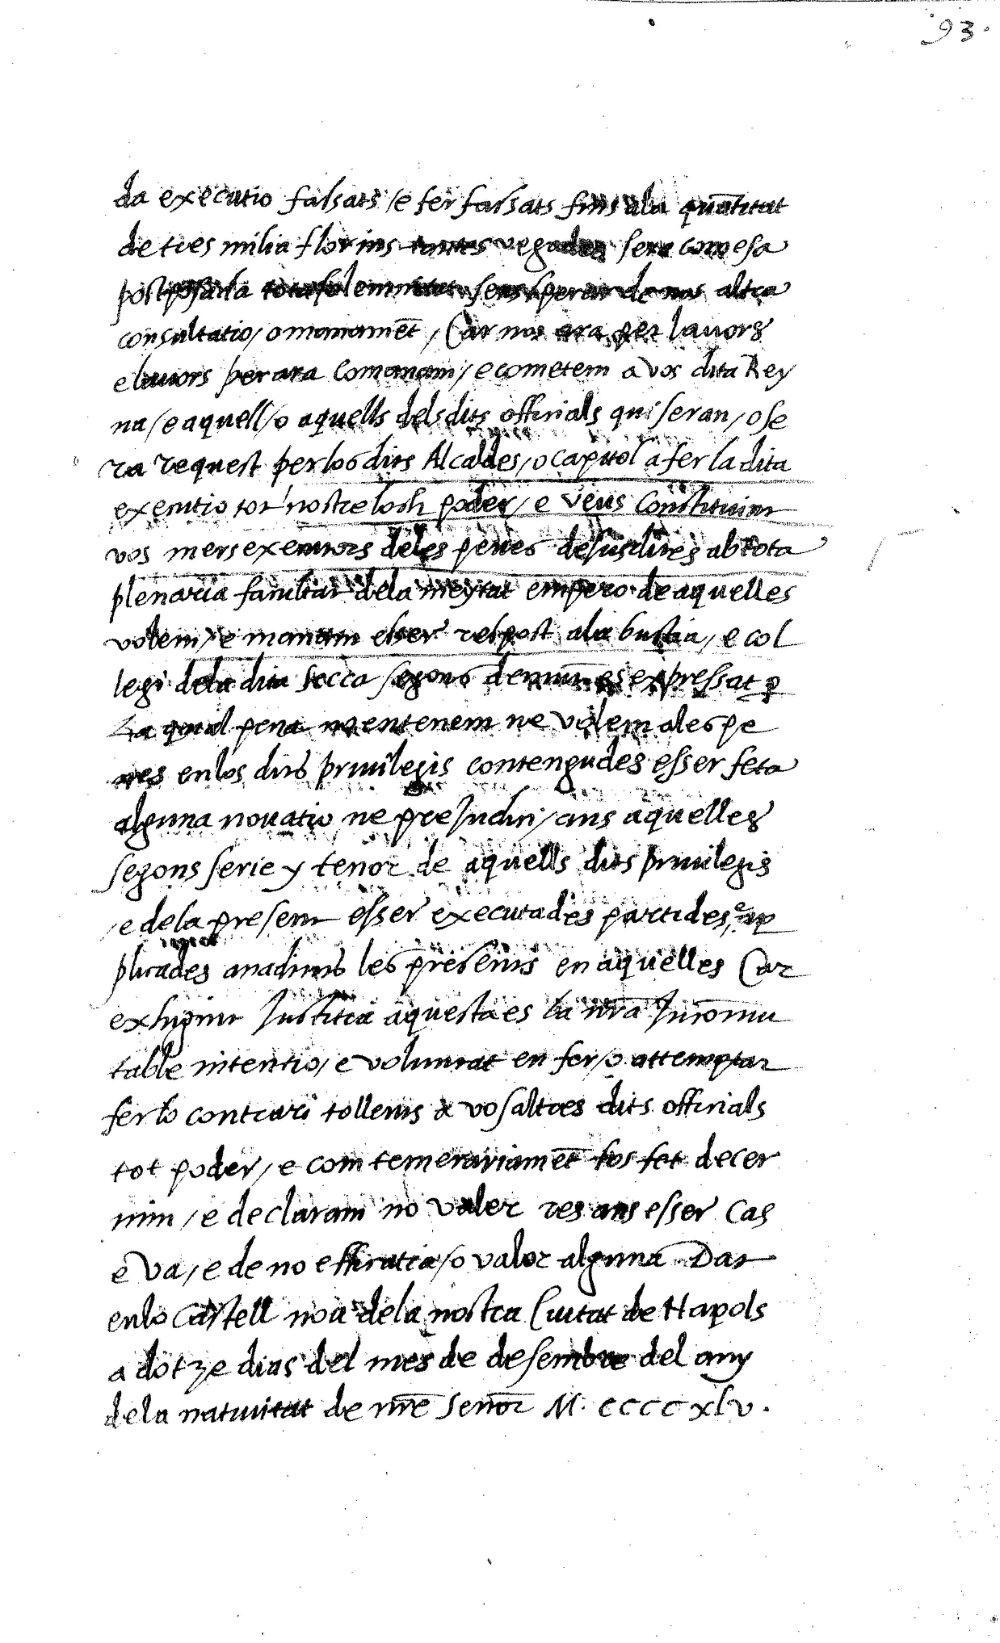 93.
da executio falsats / e fer falsats fins ala quātitat
de tres milia florins tantes vegades sera comesa
postposada tota solemnitat sens sperar de nos altra
consultatio / o manamēt / Car nos ara per lauors
e lauors per ara Comanam / e cometem a vos dita Rey
na / e aquell / o aquells dels dits officials qui seran / o se
ra request per los dits Alcaldes / o capitol a fer la dita
executio tot nostre loch poder / e veus Constituim
vos mers executors deles penes desusdites ab tota
plenaria facultat dela meytat empero de aquelles
volem / e manam esser respost ala bustia / e col
legi dela dita Secca segons demūt es expressat p
La qual pena no entenem ne volem ales pe
nes en los dits priuilegis contengudes esser feta
alguna nouatio ne preJudici / ans aquelles
segons serie y tenor de aquells dits priuilegis
/ e dela present esser executades partides, e ap
plicades anadints les presents en aquelles Car
exhigint Justitia aquesta es la nr̄a Incōmu
table intentio / e voluntat en fer / o attemptar
fer lo contrari tollents a vosaltres dits officials
tot poder / e com temerariamēt fos fet decer
nim / e declaram no valer res ans esser Cas
e Va / e de no efficatia / o valor alguna Dat
enlo Castell nou dela nostra Ciutat de Napols
a dotze dias del mes de desembre del any
dela natiuitat de nr̄e Señor M. ccccxlv.